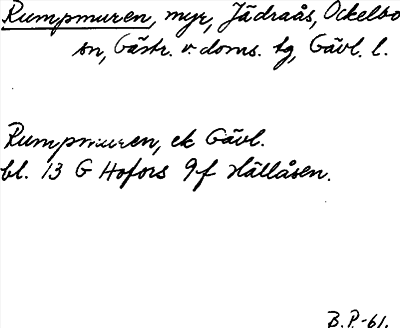 Rumpmuren, myr, Jädraås, Ockelbo
sn, Gästr. v. doms. tg, Gävl. l.
Rumpmuren, ek Gävl.
bl. 13 G Hofors 9f Hällåsen.
B.P.-61.